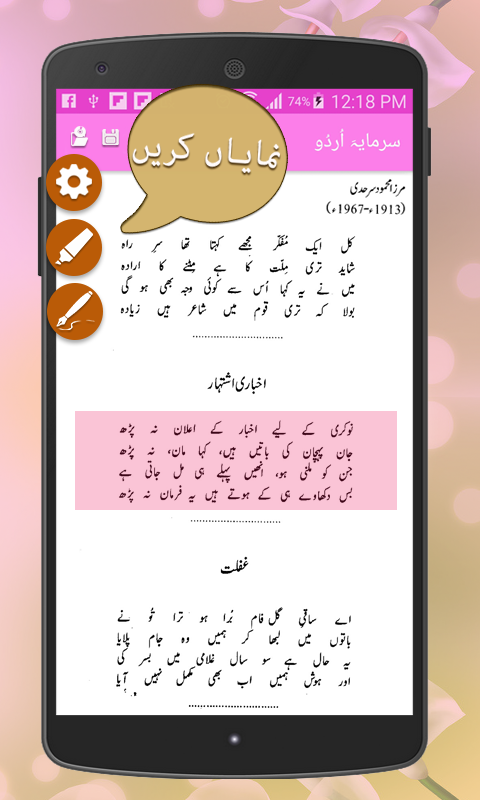 74%
12:18 PM
سرمایۂ اُردُو
نمایاں کریں
مرزا محمود سرحدی
(1913ء-1967ء)
کل ایک مُفَکّر مجھے کہتا تھا سرِ راہ
شاید تری مِلّت کا ہے مِٹنے کا ارادہ
میں نے یہ کہا اُس سے کوئی وجہ بھی ہو گی
بولا کہ تری قوم میں شاعر ہیں زیادہ
اخباری اشتہار
نوکری کے لیے اخبار کے اعلان نہ پڑھ
جان پہچان کی باتیں ہیں، کہا مان، نہ پڑھ
جن کو ملنی ہو، انھیں پہلے ہی مل جاتی ہے
بس دکھاوے ہی کے ہوتے ہیں یہ فرمان نہ پڑھ
غفلت
اے ساقیِ گل فام بُرا ہو ترا تُو نے
باتوں میں لبھا کر ہمیں وہ جام پلایا
یہ حال ہے سو سال غلامی میں بسر کی
اور ہوش ہمیں اب بھی مکمل نہیں آیا